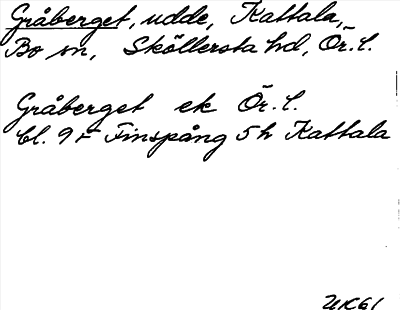 Gråberget, udde, Kattala,
Bo sn, Sköllersta hd, Ör. l.
Gråberget ek Ör. l.
bl. 9 F Finspång 5 h Kattala